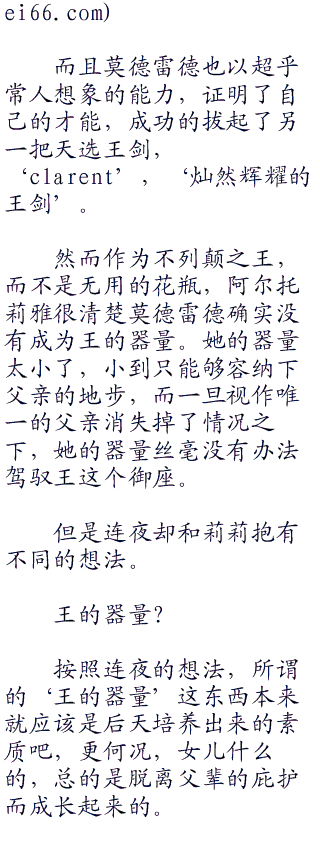 ei66.com)
而且莫德雷德也以超乎
常人想象的能力，证明了自
己的才能，成功的拔起了另
一把天选王剑，
‘clarent’，‘灿然辉耀的
王剑’。
然而作为不列颠之王，
而不是无用的花瓶，阿尔托
莉雅很清楚莫德雷德确实没
有成为王的器量。她的器量
太小了，小到只能够容纳下
父亲的地步，而一旦视作唯
一的父亲消失掉了情况之
下，她的器量丝毫没有办法
驾驭王这个御座。
但是连夜却和莉莉抱有
不同的想法。
王的器量？
按照连夜的想法，所谓
的‘王的器量’这东西本来
就应该是后天培养出来的素
质吧，更何况，女儿什么
的，总的是脱离父辈的庇护
而成长起来的。